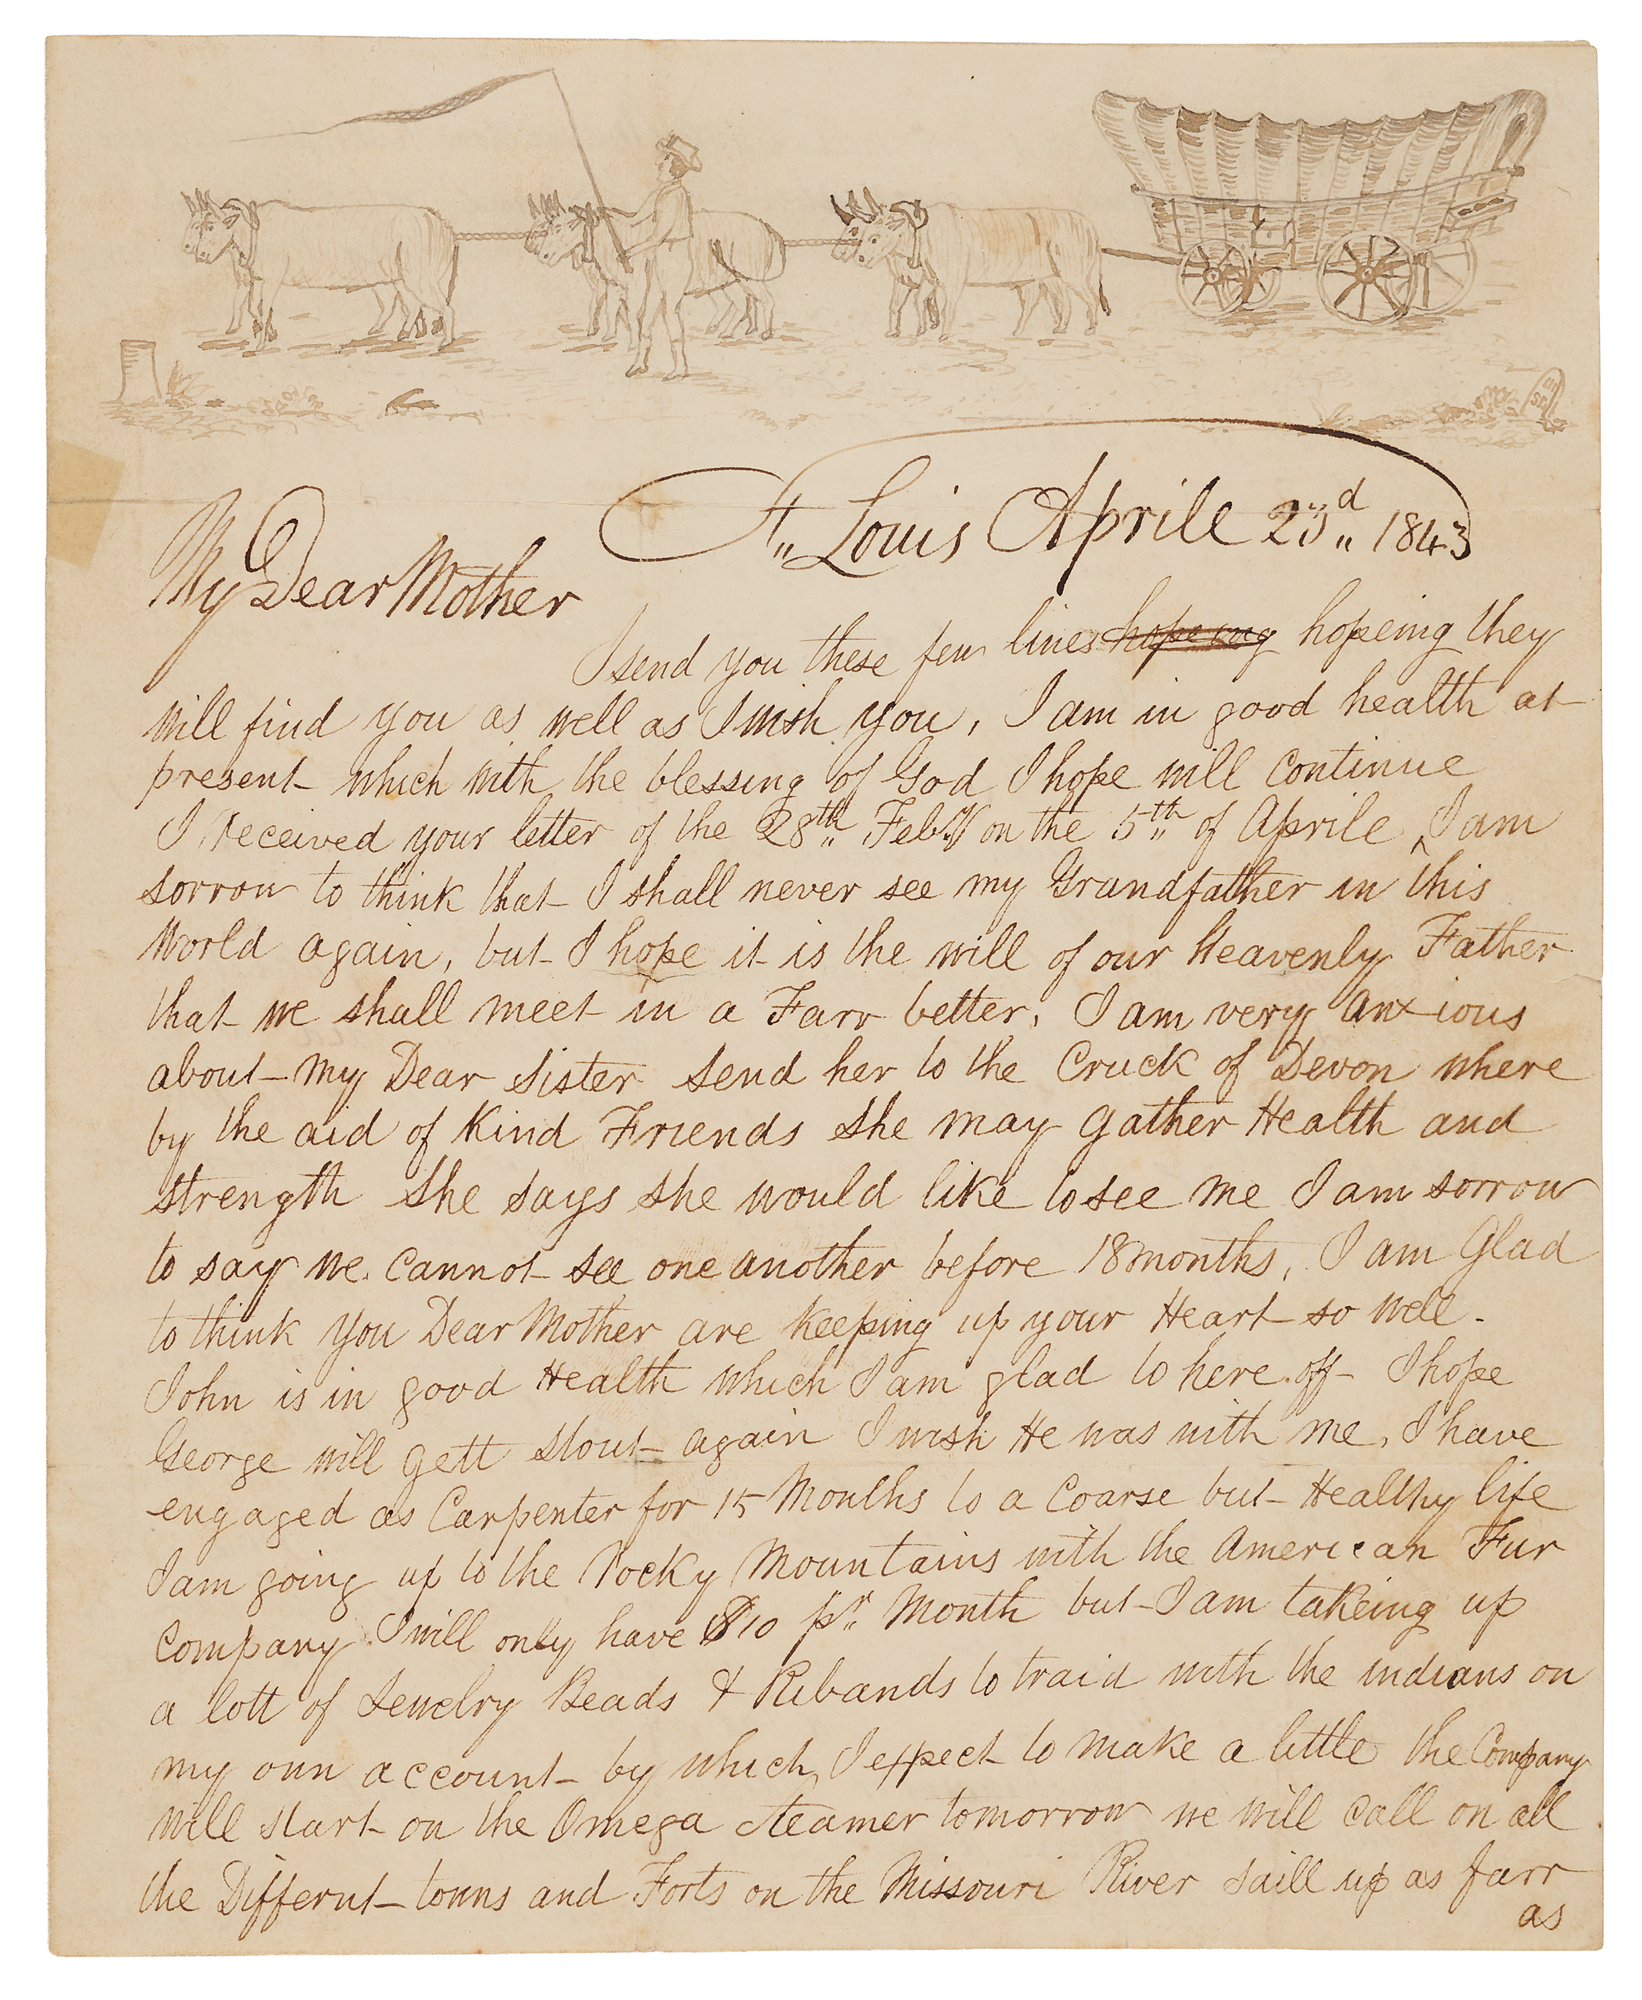 St,, Louis Aprile 23d,, 1843
My Dear Mother
I send you these few lines hopeing hopeing they
will find you as well as I wish you, I am in good health at
present which with the blessing of God I hope will continue
I received your letter of the 28th,, Feb,,y on the 5th,, of Aprile I am
sorrow to think that I shall never see my Grandfather in this
World again, but I hope it is the will of our Heavenly Father
that we shall meet in a Farr better, I am very anxious
about my Dear Sister send her to the Cruck of Devon where
by the aid of Kind Friends she may gather Health and
strength she says she would like to see me I am sorrow
to say we cannot see one another before 18 months, I am Glad
to think you Dear Mother are keeping up your Heart so well -
John is in good Health which I am glad to here off - I hope
George will gett stout again I wish He was with me, I have
engaged as Carpenter for 15 Months to a Coarse but Healthy life
I am going up to the Rocky Mountains with the American Fur
Company I will only have $10 pr,, Month but I am takeing up
a lott of Jewelry Beads & Ribands to traid with the indians on
my own account by which I expect to make a little the Company
will start on the Omega steamer tomorrow we will call on all
the Differnt towns and Forts on the Missouri River saill up as farr
as